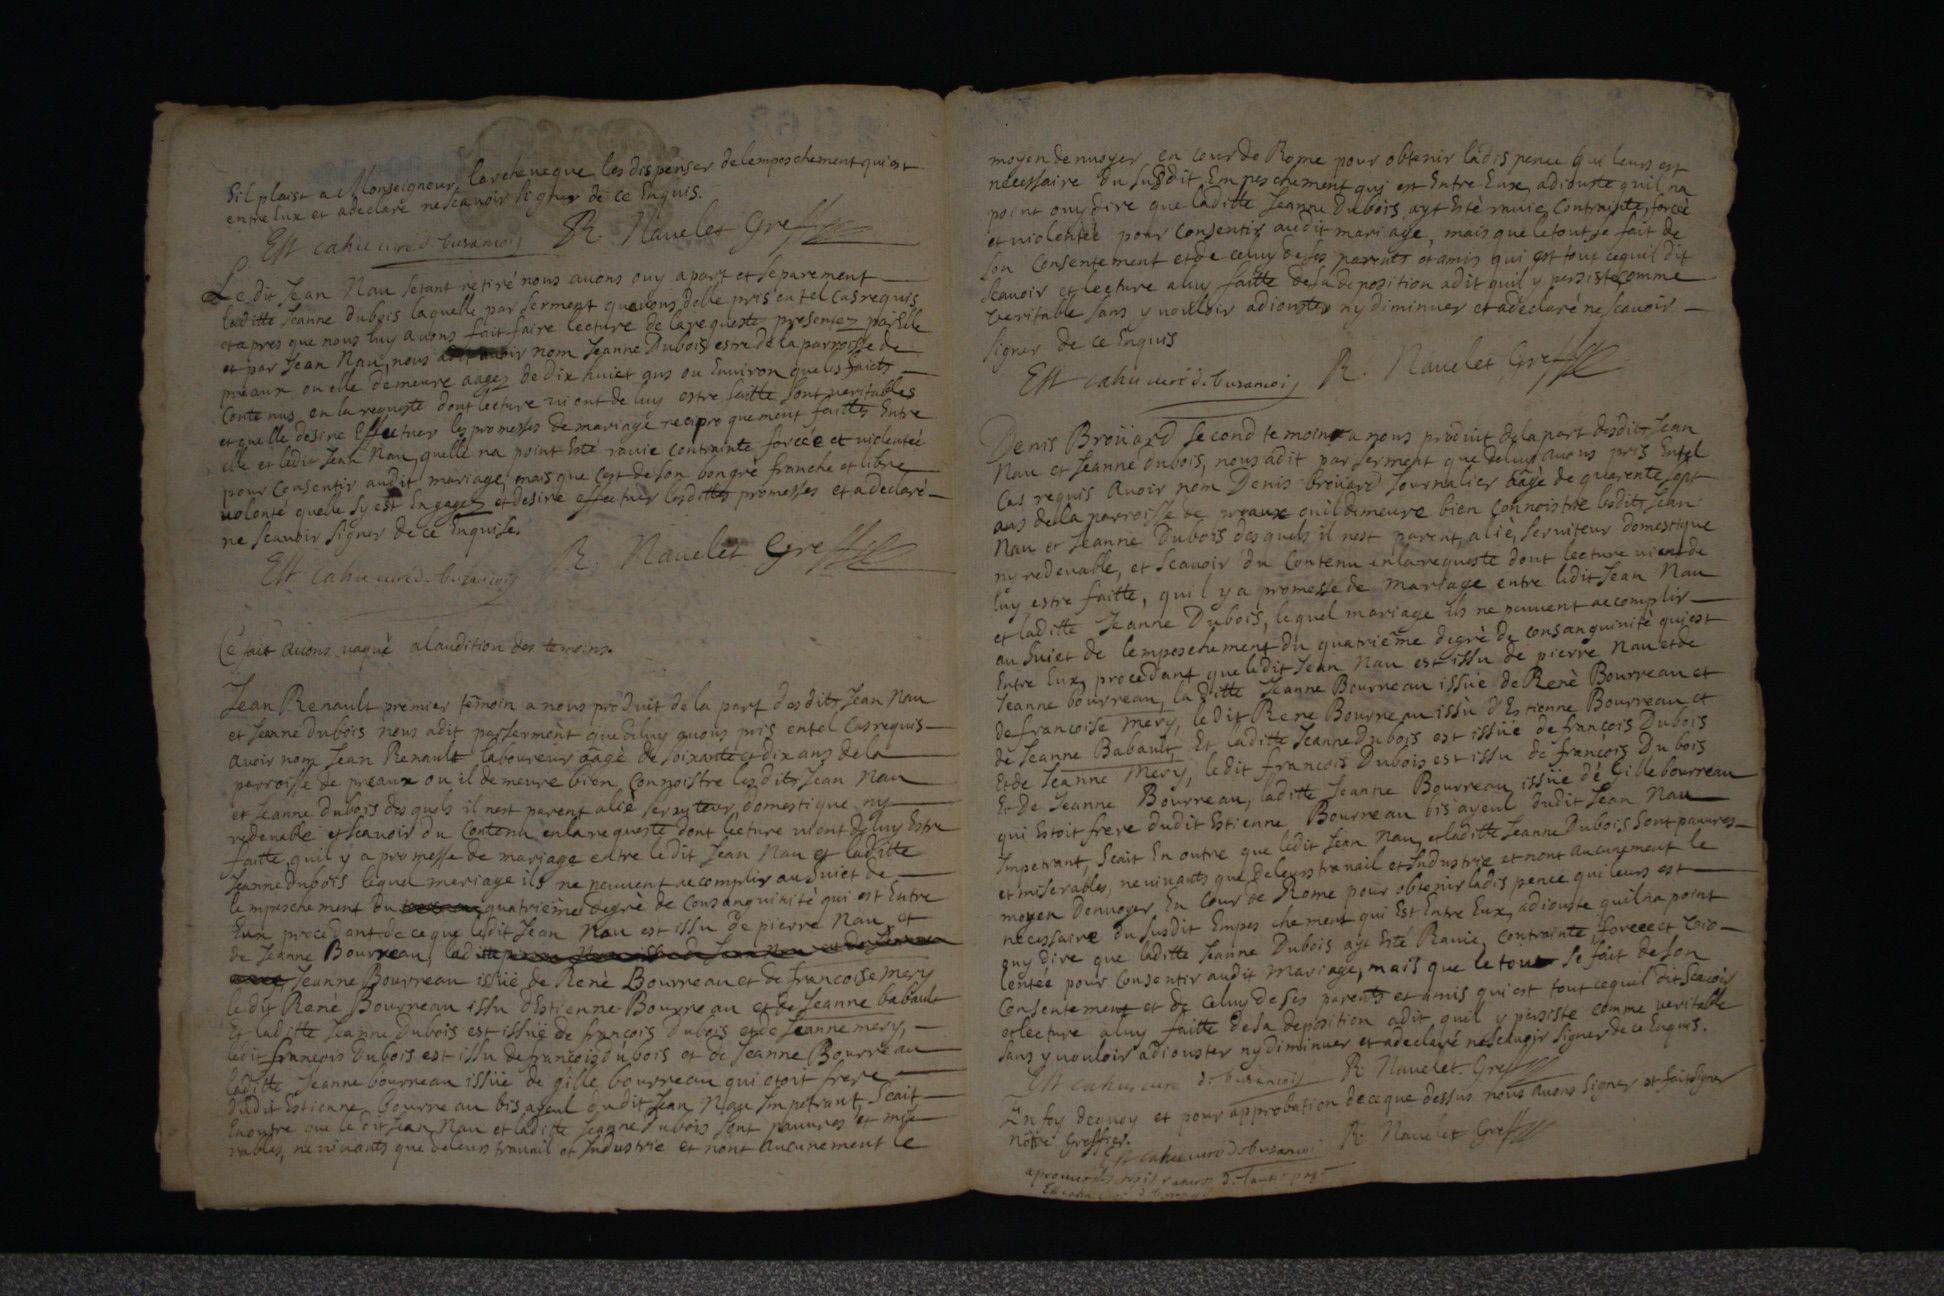 Sil plaist a Monseigneur larcheueque les dispenser de lemposchement qui est
entre Eux et adeclaré ne scauoir signer de ce Enquis.
Est cahu curé d. busancois R. Nauelet Greff
Le dit Jean Nau setant retiré nous auons ouy apart et separement
laditte Jeanne dubois laquelle par serment quauons delle pris en tel Cas requis
et apres que nous luy auons fait faire lecture de la requeste presentez par Elle
et par Jean Nau, nous nom Jeanne Dubois estre de la parroisse de
preaux ou elle demeure aagez de dix huict ans ou Enuiron que les faicts
Contenus en la requeste dont lecture uient de luy estre faitte sont ueritables
et quelle desire Effectuer les promesses de mariage reciproquement faittes Entre
elle et ledit Jean Nau, quelle na point Esté rauie contrainte forcée et uiolentée
pour Consentir audit mariage, mais que cest de son bongré franche et libre
uolonté quelle sy est Engagez et desire effectuer lesdittes promesses et adeclaré
ne scauoir signer de ce Enquise.
Est cahu curé d. busancois R. Nauelet Greff
Ce fait auons uaqué alaudition des temoins.
Jean Renault premier temoin a nous produit de la part desdits Jean Nau
et Jeanne dubois nous adit par serment que de luy auons pris en tel Cas requis
auoir nom Jean Renault laboureur aagé de soixante et dix ans de la
parroisse de preaux ou il demeure bien Connoistre lesdits Jean Nau
et Jeanne Dubois desquels il nest parent alié seruiteur, domestique ny
redeuable et scauoir du Contenu en la requeste dont lecture uient de luy Estre
faitte, quil y a promesse de mariage entre ledit Jean Nau et laditte
Jeanne dubois lequel mariage ils ne peuuent accomplir au suiet de
lempeschement du quatrieme degré de Consanguinité qui est Entre
Eux procedant de ce que ledit Jean Nau est issu de pierre Nau et
de Jeanne Bourreau, laditte
Jeanne Bourreau issüe de René Bourreau et de francoise mery
ledit René Bourreau issu dEstienne Bourreau et de Jeanne babault
Et laditte Jeanne Dubois est issüe de françois Dubois et de Jeanne mery,
ledit françois Dubois est issu de françois dubois et de Jeanne Bourreau
laditte Jeanne bourreau issüe de gille bourreau qui etoit frere
dudit Estienne bourreau bisayeul dudit Jean Nau Impetrant, Scait
Enoutre que le dit Jean Nau et laditte Jeanne dubois sont pauures et mise
rables, ne uiuants que de leurs trauail et Industrie et nont aucunement le
moyen denuoyer en cour de Rome pour obtenir la dispence qui leurs est
necessaire du susdit Empeschement qui est Entre Eux, adiouste quil na
point ouy dire que laditte Jeanne Dubois ayt Esté rauie, Contrainte, forcée
et uiolentée pour Consentir audit mariage, mais que le tout se fait de
son Consentement et de celuy de ses parents et amis qui est tout ce quil dit
scauoir et lecture a luy faitte de sa deposition adit quil y persiste comme
veritable sans y uouloir adiouster ny diminuer et adeclaré ne scauoir
signer de ce Enquis
Est cahu curé d. busancois R. Nauelet Greff
Denis Broüard Second temoin a nous produit de la part desdits Jean
Nau et Jeanne dubois, nous adit par serment que de luy auons pris Entel
Cas requis auoir nom Denis broüard Journalier aâgé de quarente sept
ans de la parroisse de preaux ou il demeure bien connoistre lesdits Jean
Nau et Jeanne Dubois desquels il nest parent, alié, seruiteur domestique
ny redeuable, et scauoir du Contenu en la requeste dont lecture uient de
luy estre faitte, quil y a promesse de mariage entre ledit Jean Nau
et laditte Jeanne Dubois, lequel mariage ils ne peuuent accomplir
au suiet de lemposchement du quatrieme degré de consanguinité qui est
Entre Eux, procedant que ledit Jean Nau est issu de pierre Nau et de
Jeanne bourreau, laditte Jeanne Bourreau issüe de René Bourreau et
de francoise mery, ledit Rene Bourreau issu dEstienne Bourreau et
de Jeanne Babault, Et laditte Jeanne Dubois est issüe de françois Dubois
Et de Jeanne Mery, ledit francois Dubois est issu de françois Dubois
Et de Jeanne Bourreau, laditte Jeanne Bourreau issüe de Gille bourreau
qui Estoit frere dudit Estienne Bourreau bisayeul dudit Jean Nau
Impetrant, Scait En outre que ledit Jean Nau, et laditte Jeanne Dubois sont pauures
et miserables, ne uiuants que de leurs trauail et Industrie et nont aucunement le
moyen Denuoyer En Cour de Rome pour obtenir la dispence qui leurs est
necessaire du susdit Empeschement qui Est Entre Eux, adiouste quil na point
ouy dire que laditte Jeanne Dubois ayt Esté Rauie, contrainte, forcée et vio
lentée pour Consentir audit Mariage, mais que le tout se fait de son
Consentement et de Celuy de ses parents et amis qui est tout ce quil dit Scauoir
et lecture a luy faitte de sa deposition adit quil y persiste comme veritable
sans y uouloir adiouster ny diminuer et adeclaré ne scauoir signer de ce Enquis.
Est cahu curé d. busancois R. Nauelet Greff
En foy dequoy et pour approbation de ce que dessus nous auons signer et fait signer
nôtre Greffier.
Est cahu curé d. busancois R. Nauelet Greff
aprouuons trois ratures d. lautre page
Est cahu